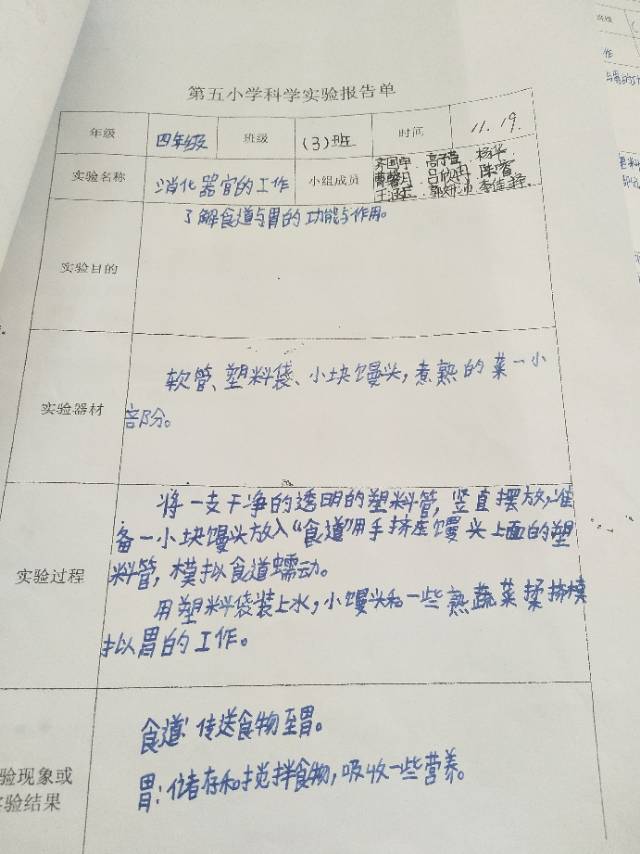 第五小学科学实验报告单
年级 四年级 班级 (3)班 时间 11.19.
实验名称 消化器官的工作 小组成员 高子萱 杨华
吕欣雨 陈睿
实验目的 了解食道与胃的功能与作用。
实验器材 软管、塑料袋、小块馒头,煮熟的菜一小
部分。
实验过程 将一支干净的透明的塑料管,竖直摆放,准
备一小块馒头放入“食道”用手挤压馒头上面的塑
料管,模拟食道蠕动。
用塑料袋装上水,小馒头和一些熟蔬菜揉搓模
拟胃的工作。
验现象或
实验结果
食道:传送食物至胃。
胃:储存和搅拌食物,吸收一些营养。